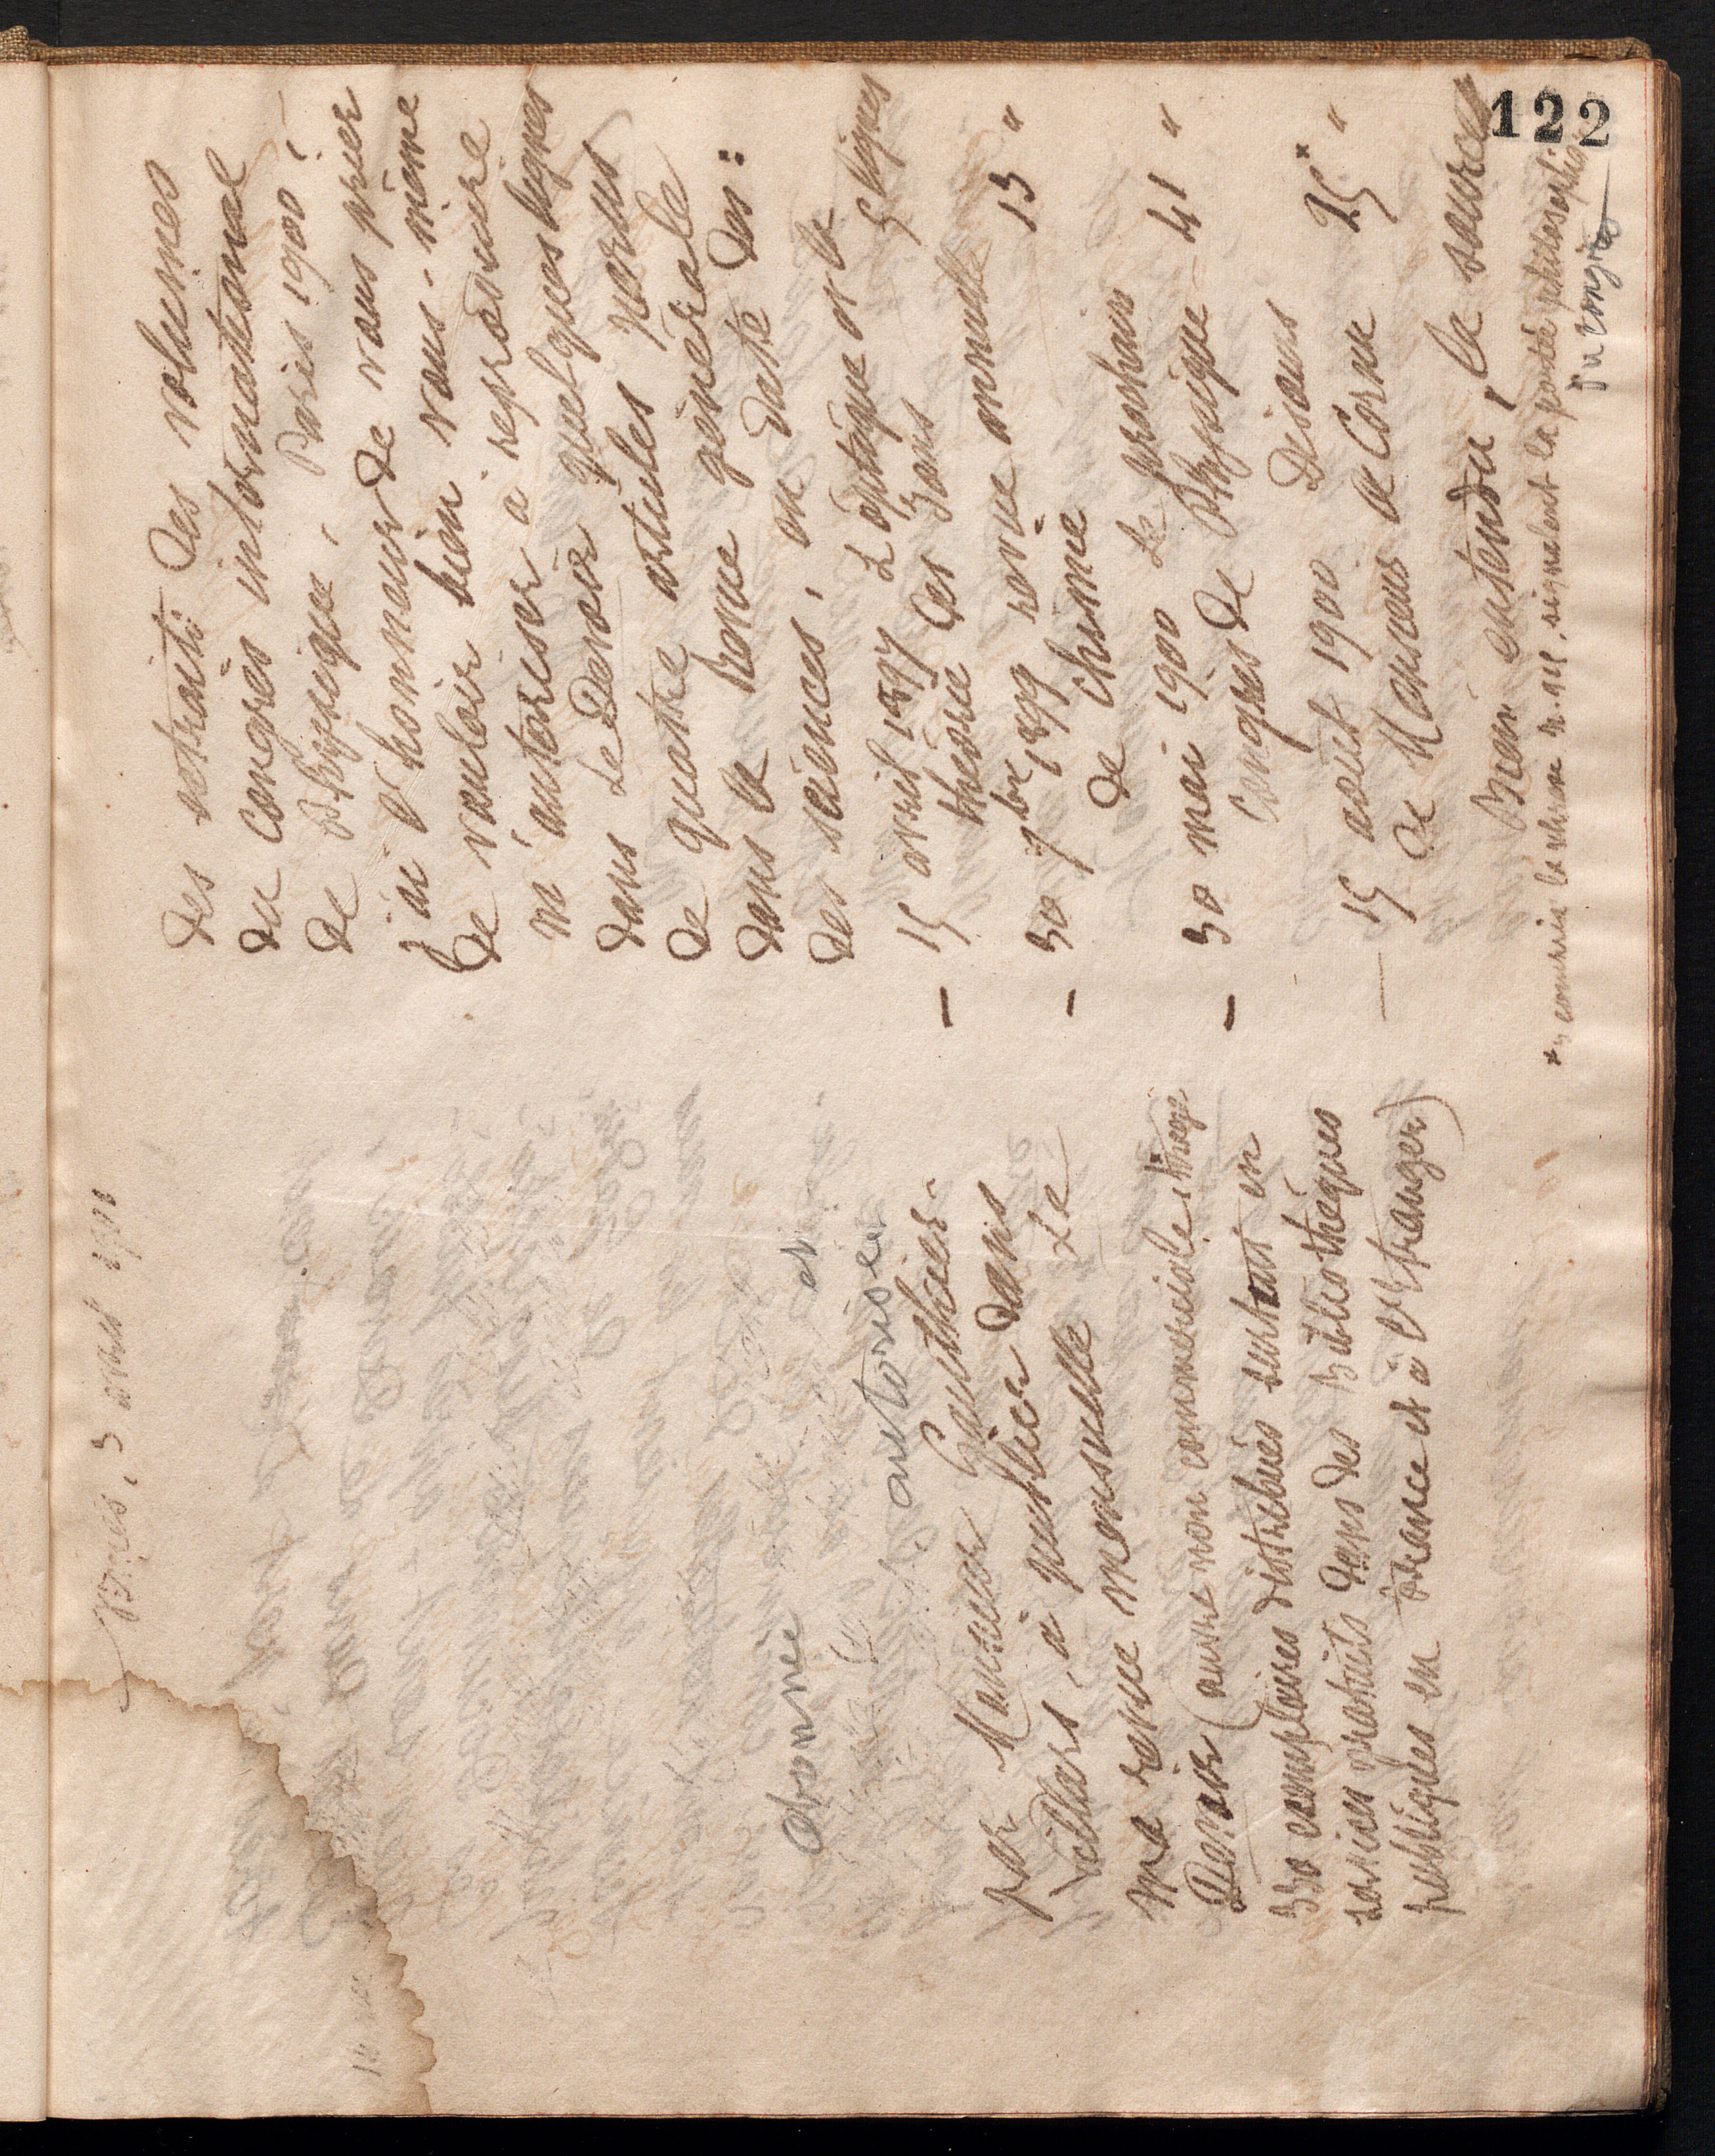 122
Paris, 3 avril 1901
abonné et
autorisée
par Monsieur Gauthier-
Villars, à publier dans
ma revue mensuelle Le
Devoir (œuvre non commerciale, tirage
330 exemplaires distribués surtout en
services gratuits dans des Bibliothèques
publiques en France et à l'étranger)
des extraits des volumes
du Congrès international
de Physique, Paris 1900,
j'ai l'honneur de vous prier
de vouloir bien vous-même
m'autoriser à reproduire
dans Le Devoir quelques lignes
de quatre articles parus
dans la Revue générale
des sciences, en date des :
– 15 avril 1897 L'optique et la
théorie des ions 5 lignes
– 30 7bre 1899 revue annuelle
de chimie 13 "
– 30 mai 1900 Le prochain
Congrès de Physique 41 "
– 15 août 1900 Discours
de Monsieur A Cornu 25* "
Bien entendu, la source
* y compris la phrase n. all. signalant la portée philosophique
du congrès